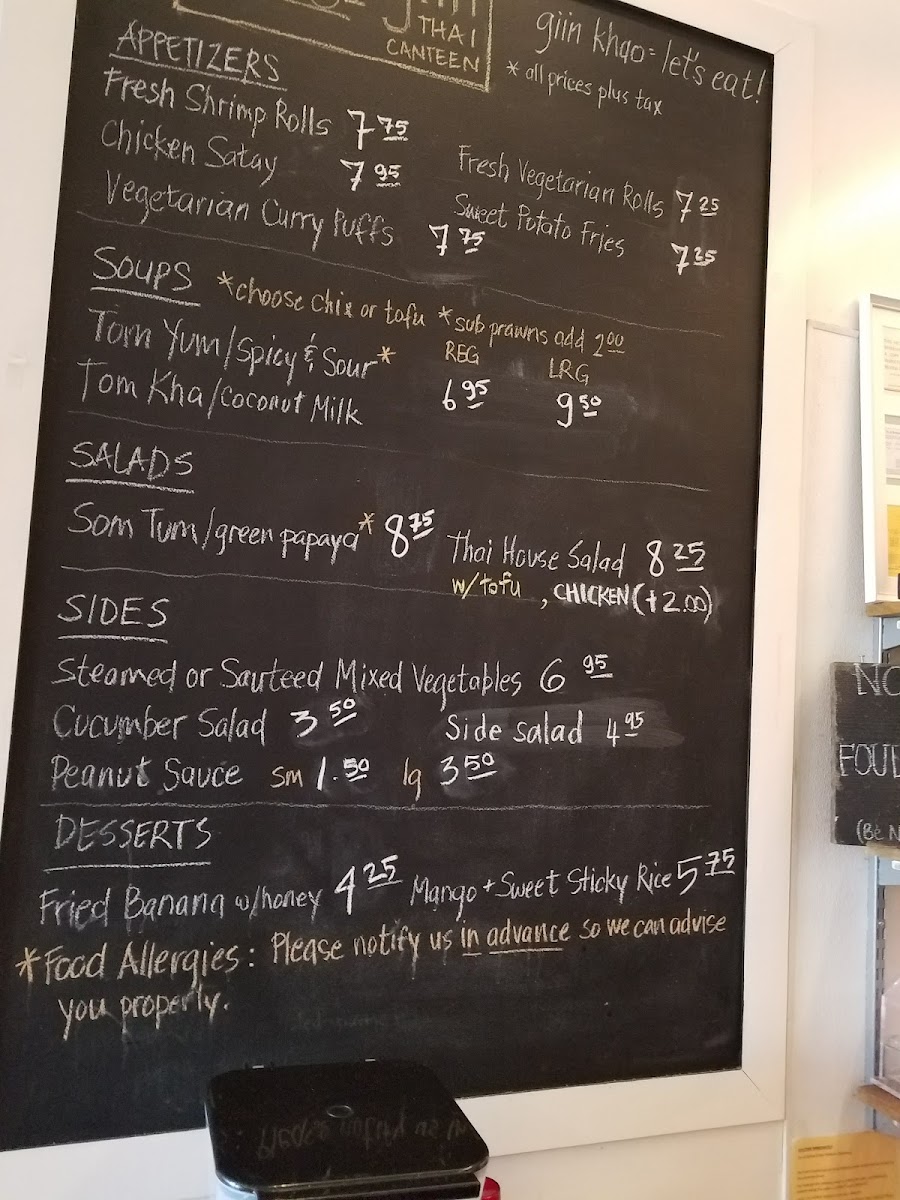 THAI
CANTEEN
giin khao = let's eat!
* all prices plus tax
APPETIZERS
Fresh Shrimp Rolls 7 75
Chicken Satay 7 95
Vegetarian Curry Puffs 7 75
Fresh Vegetarian Rolls 7 25
Sweet Potato Fries 7 25
SOUPS *choose chix or tofu *sub prawns add 2 00
REG LRG
Tom Yum/Spicy & Sour*
Tom Kha/Coconut Milk 6 95 9 50
SALADS
Som Tum/green papaya* 8 75
Thai House Salad 8 25
w/tofu, CHICKEN (+2.00)
SIDES
Steamed or Sauteed Mixed Vegetables 6 95
Cucumber Salad 3 50 Side Salad 4 95
Peanut Sauce sm 1.50 lg 3 50
DESSERTS
Fried Banana w/honey 4 25 Mango + Sweet Sticky Rice 5 75
*Food Allergies: Please notify us in advance so we can advise
you properly.
NO
(Be N